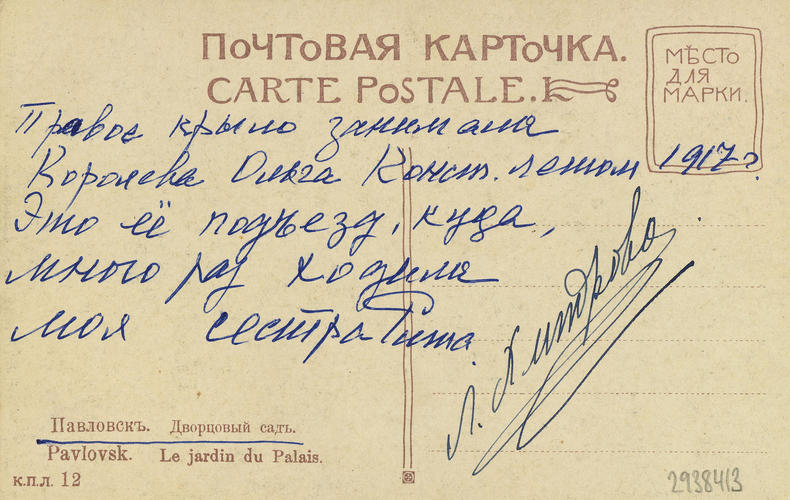 ПОЧТОВАЯ КАРТОЧКА.
CARTE POSTALE.
МѢСТО
ДЛЯ
МАРКИ.
Правое крыло занимала
Королева Ольга Конст. летом 1917 г.
Это её подъезд, куда,
много раз ходила
моя сестра Рита.
Л. Хитрово.
Павловскъ. Дворцовый садъ.
Pavlovsk. Le jardin du Palais.
к.п.л. 12
29384/3